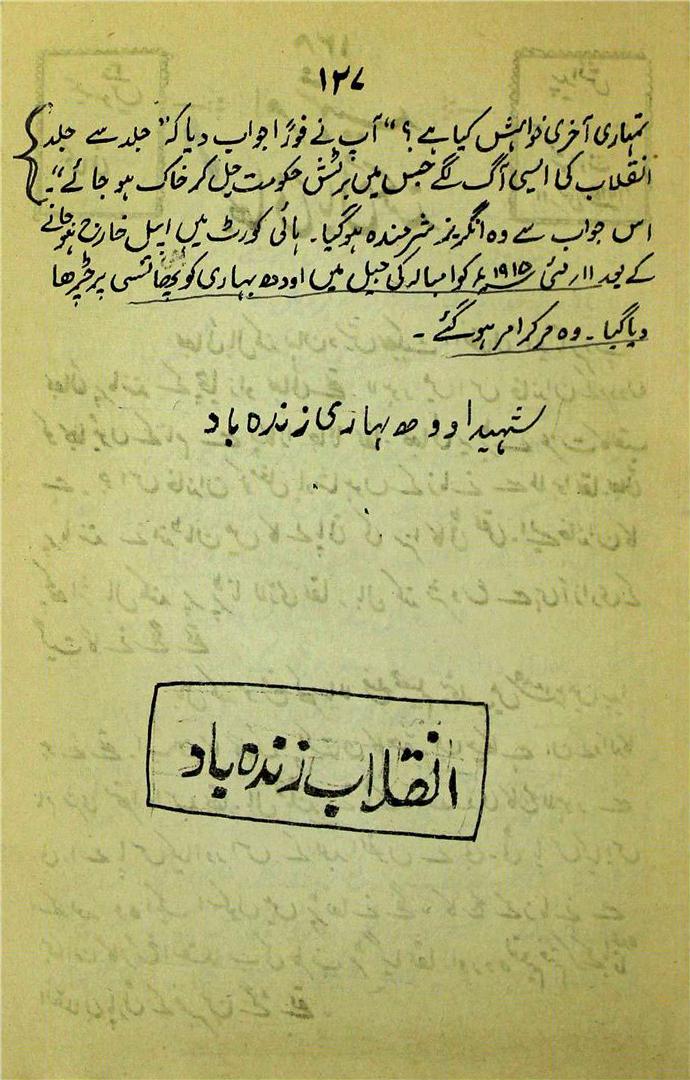 ۱۲۷
تمہاری آخری خواہش کیا ہے؟" آپ نے فوراً جواب دیا کہ" جلد سے جلد
انقلاب کی ایسی آگ لگے جس میں برٹش حکومت جل کر خاک ہو جائے"۔
اس جواب سے وہ انگریز شرمندہ ہوگیا۔ ہائی کورٹ میں اپیل خارج ہوجانے
کے بعد ۱۱ رمئی ۱۹۱۵ء کو امبالہ کی جیل میں اودھ بہاری کو پھانسی پر چڑھا
دیا گیا۔ وہ مر کر امر ہو گئے۔
شہید اودھ بہاری زندہ باد
انقلاب زندہ باد